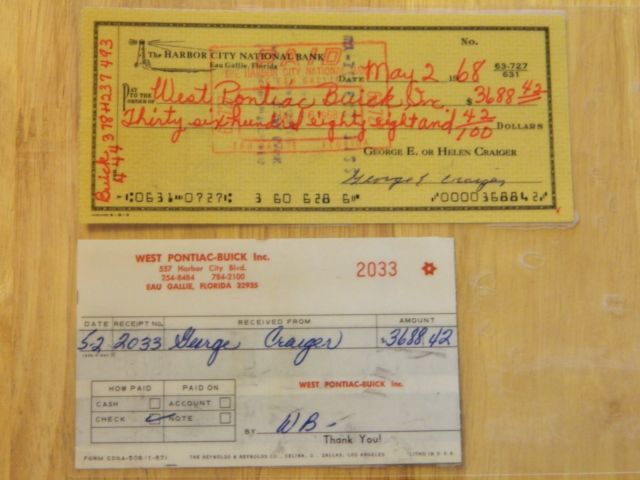 No.
The HARBOR CITY NATIONAL BANK
Eau Gallie, Florida
PAID
63-727
631
DATE May 2 1968
PAY TO THE ORDER OF West Pontiac Buick Inc. $3688 42
Thirty six hundred eighty eight and 42/100 DOLLARS
GEORGE E. OR HELEN CRAIGER
George E Craiger
Buick 444378H237493
⑆0631⑉0727⑆ 3 60 628 6⑈ ⑈0000368842⑈
WEST PONTIAC-BUICK Inc.
557 Harbor City Blvd.
254-8484 784-2100
EAU GALLIE, FLORIDA 32935
2033
DATE RECEIPT NO. RECEIVED FROM AMOUNT
5-2 2033 George Craiger $3688.42
HOW PAID PAID ON
CASH ACCOUNT
CHECK NOTE
WEST PONTIAC-BUICK Inc.
BY WB-
Thank You!
THE REYNOLDS & REYNOLDS CO., CELINA, O., DALLAS, LOS ANGELES
LITHO IN U.S.A.